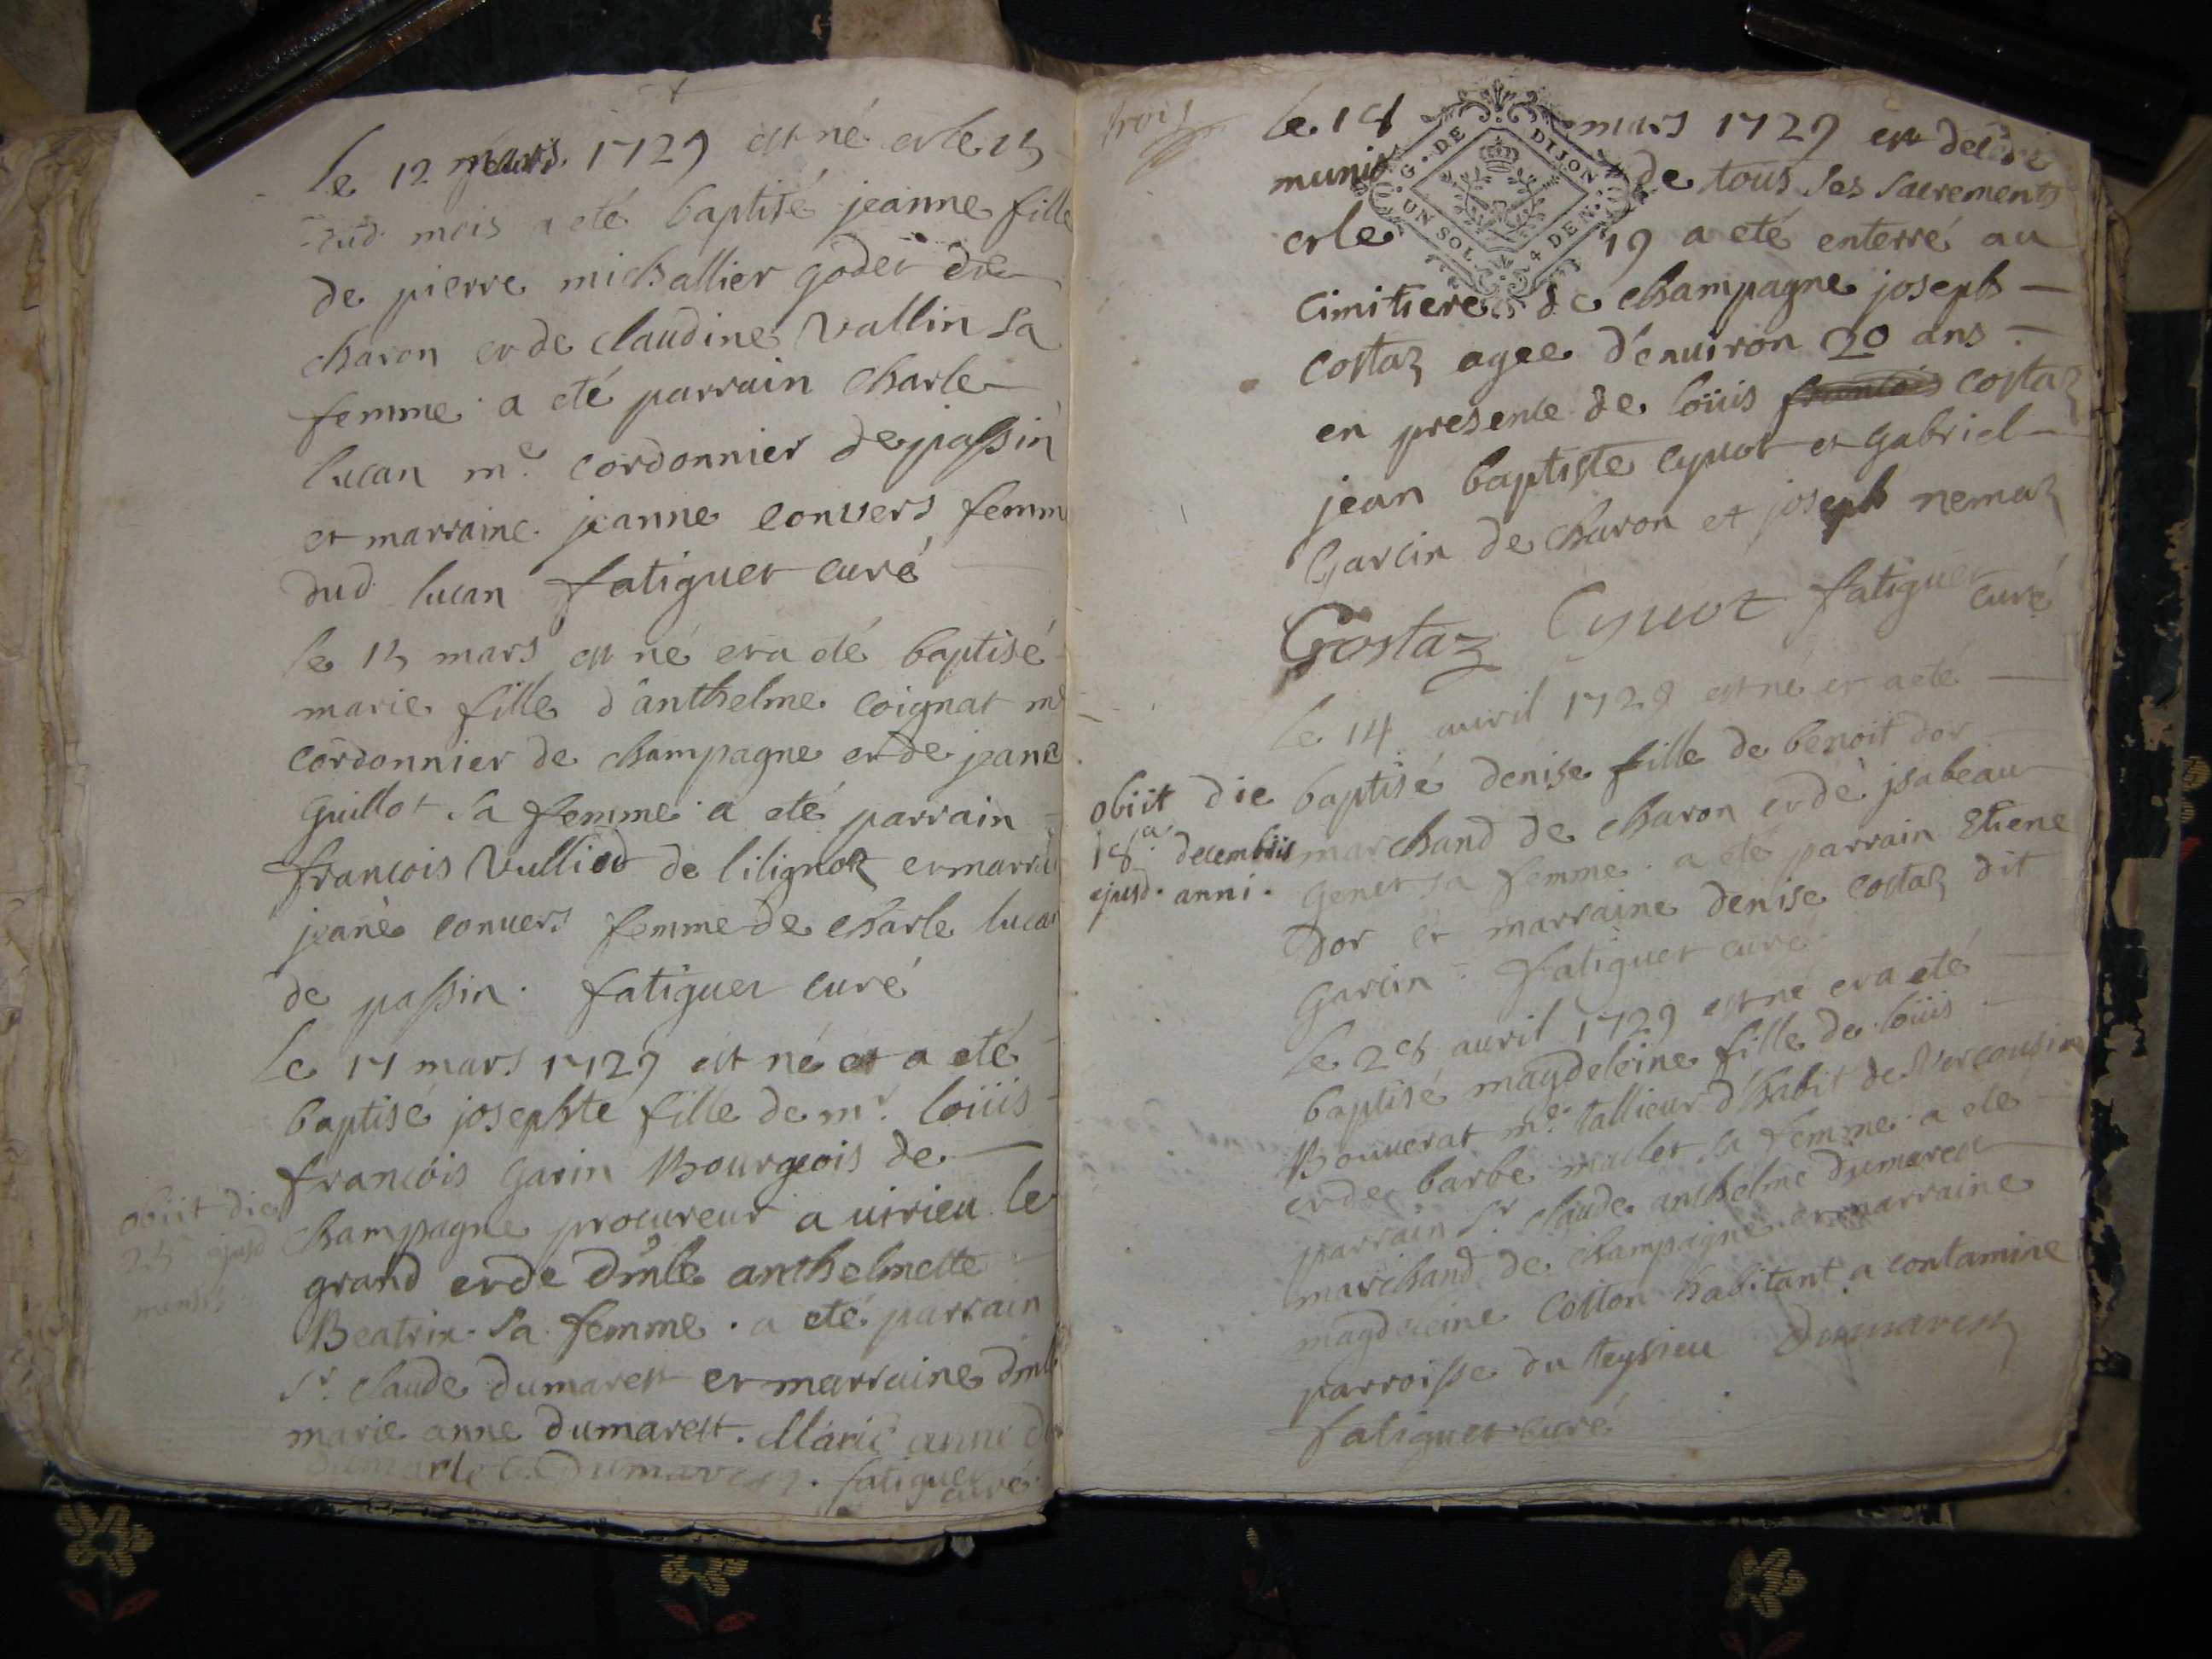 le 12 mars 1729 est né et le 13
dud. mois a eté baptisé jeanne fille
de pierre michallier godet de
charon et de claudine vallin sa
femme. a eté parrain charle
lucan me. cordonnier de passin
et marraine jeanne convers femme
dud lucan fatiguet curé
le 13 mars est né et a eté baptisé
marie fille d'anthelme coignat me
cordonnier de champagne et de jeane
guillot sa femme. a eté parrain
francois vulliod de lilignod et marraine
jeane convers femme de charle lucan
de passin. fatiguet curé
le 17 mars 1729 est né et a eté
baptisé josephte fille de mr. loüis
francois garin Bourgeois de
champagne procureur a virieu le
obiit die
23 ejusd
mensis
grand et de dmle anthelmette
Beatrix sa femme. a eté parrain
sr. claude dumarest et marraine dmlle
marie anne dumarest. Marie anne
Dumarest. fatiguet
curé
trois
le 18 mars 1729 est decede
munis de tous ses sacrements
et le 19 a eté enterré au
G. DE DIJON. UN SOL 4 DEN.
cimitiere de champagne joseph
costaz agee d'enuiron 20 ans
en presence de loüis francois costaz
jean baptiste cyuot et gabriel
garcin de charon et joseph nemoz
Costaz Cyuot fatiguet
curé
le 14 auril 1729 est né et a eté
baptisé denise fille de benoit dor
marchand de charon et de jsabeau
genet sa femme. a eté parrain Etiene
obiit die
18a. decembris
ejusd. anni.
Dor et marraine denise costaz dit
garcin. fatiguet curé
le 28 auril 1729 est né et a eté
baptisé magdeleine fille de loüis
Bouuerat me. tallieur d'habit de
et de barbe mallet sa femme. a eté
parrain sr. claude anthelme dumarest
marchand de champagne et marraine
magdeleine cotton habitant a contamine
parroisse du teysieu Dumarest
fatiguet curé